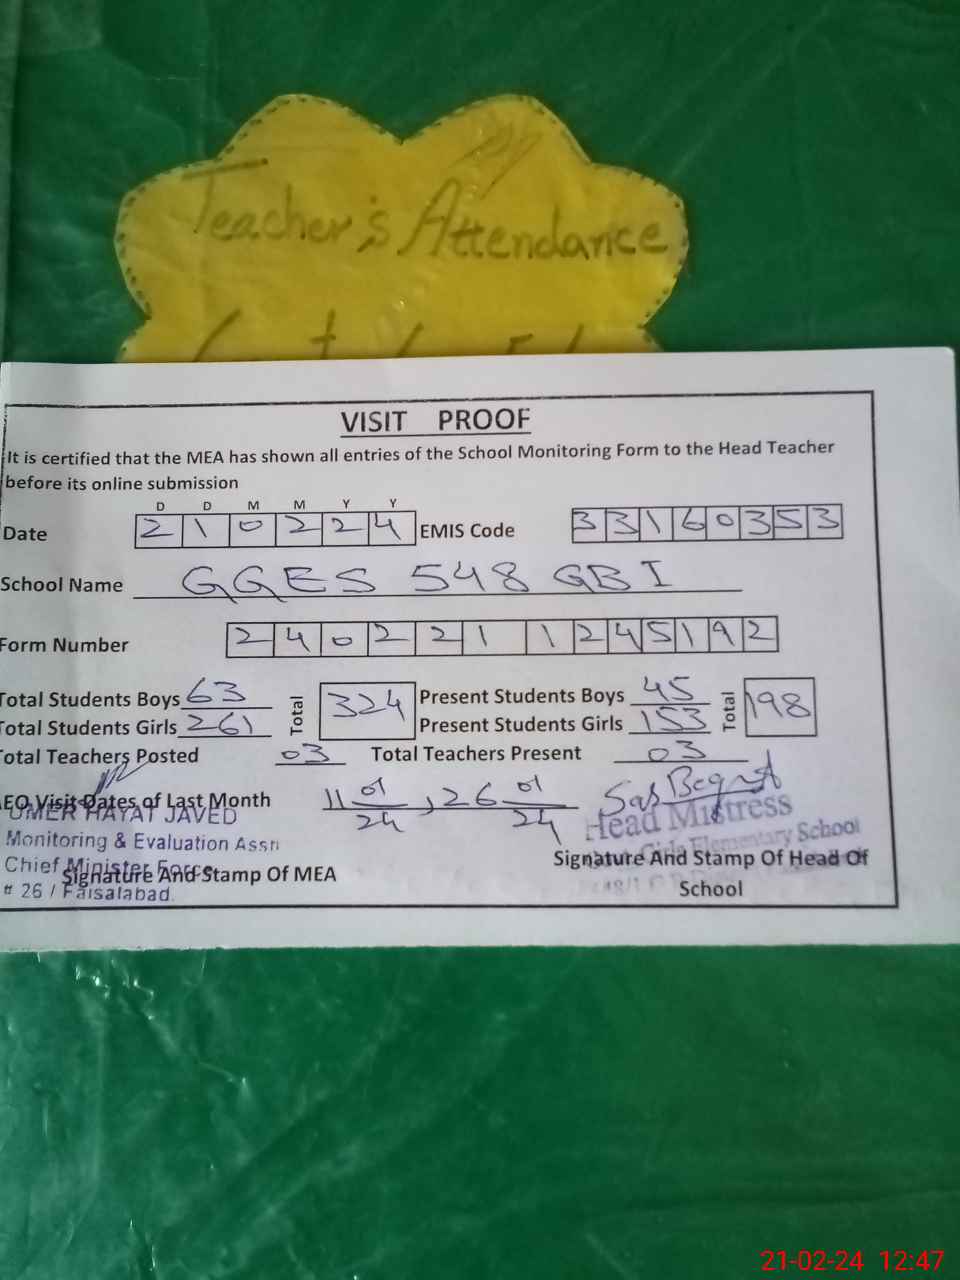 Teacher's Attendance
VISIT PROOF
It is certified that the MEA has shown all entries of the School Monitoring Form to the Head Teacher
before its online submission
D D M M Y Y
Date 2 1 0 2 2 4 EMIS Code 3 3 1 6 0 3 5 3
School Name GGES 548 GB I
Form Number 2 4 0 2 2 1 1 2 4 5 1 9 2
Total Students Boys 63 Total 324 Present Students Boys 45 Total 198
Total Students Girls 261 Present Students Girls 153
Total Teachers Posted 03 Total Teachers Present 03
AEO Visit Dates of Last Month 11 01/24, 26 01/24
UMER HAYAT JAVED
Monitoring & Evaluation Assn
Chief Minister Force
# 26 / Faisalabad.
Signature And Stamp Of MEA
Head Mistress
Girls Elementary School
Signature And Stamp Of Head Of
School
21-02-24 12:47